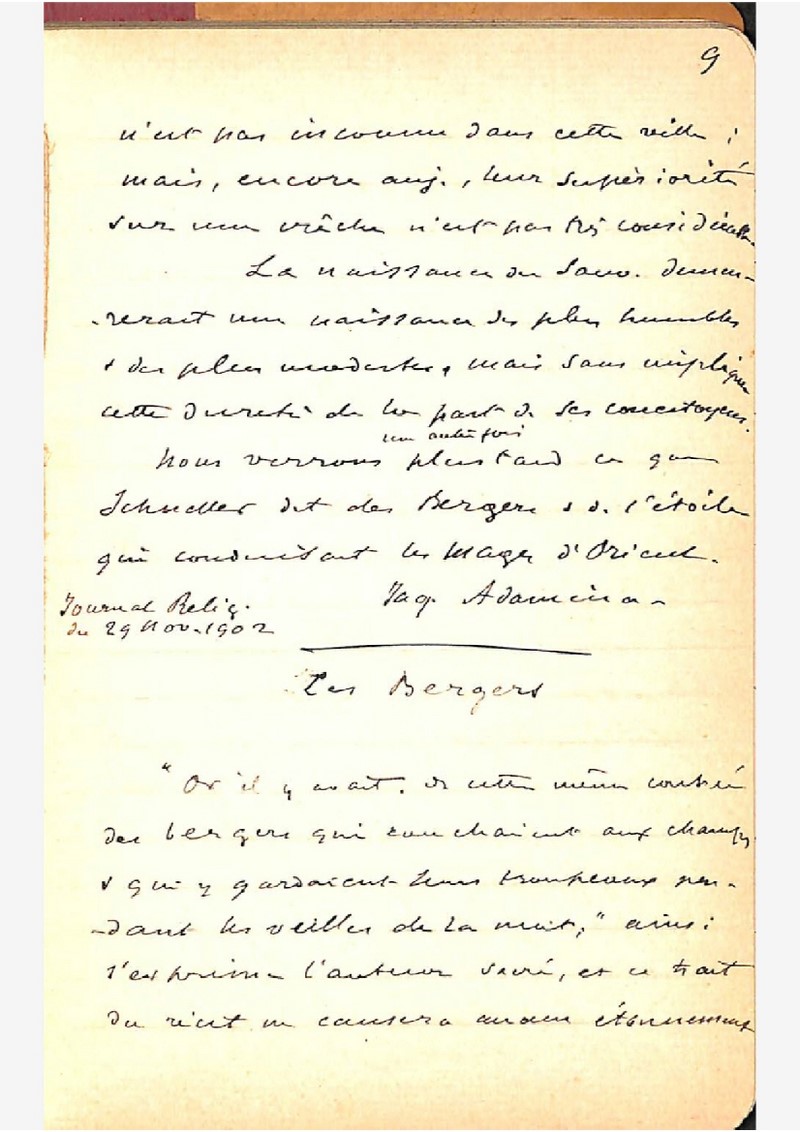 9
n'est pas inconnu dans cette ville ;
mais, encore auj., leur supériorité
sur une crèche n'est pas très considérable.
La naissance du Sauv. demeu-
-rerait une naissance des plus humbles
& des plus modestes, mais sans impliquer
cette dureté de la part de ses concitoyens.
une autre fois
Nous verrons plus tard ce que
Schneller dit des Bergers & de l'étoile
qui conduisait les Mages d'Orient.
Jaq. Adamina-
Journal Relig.
du 29 Nov. 1902
Les Bergers
"Or il y avait, de cette même contrée
des bergers qui couchaient aux champs
& qui y gardaient leurs troupeaux pen-
-dant les veilles de la nuit," ainsi
s'exprime l'auteur sacré, et ce trait
du récit ne causera aucun étonnement